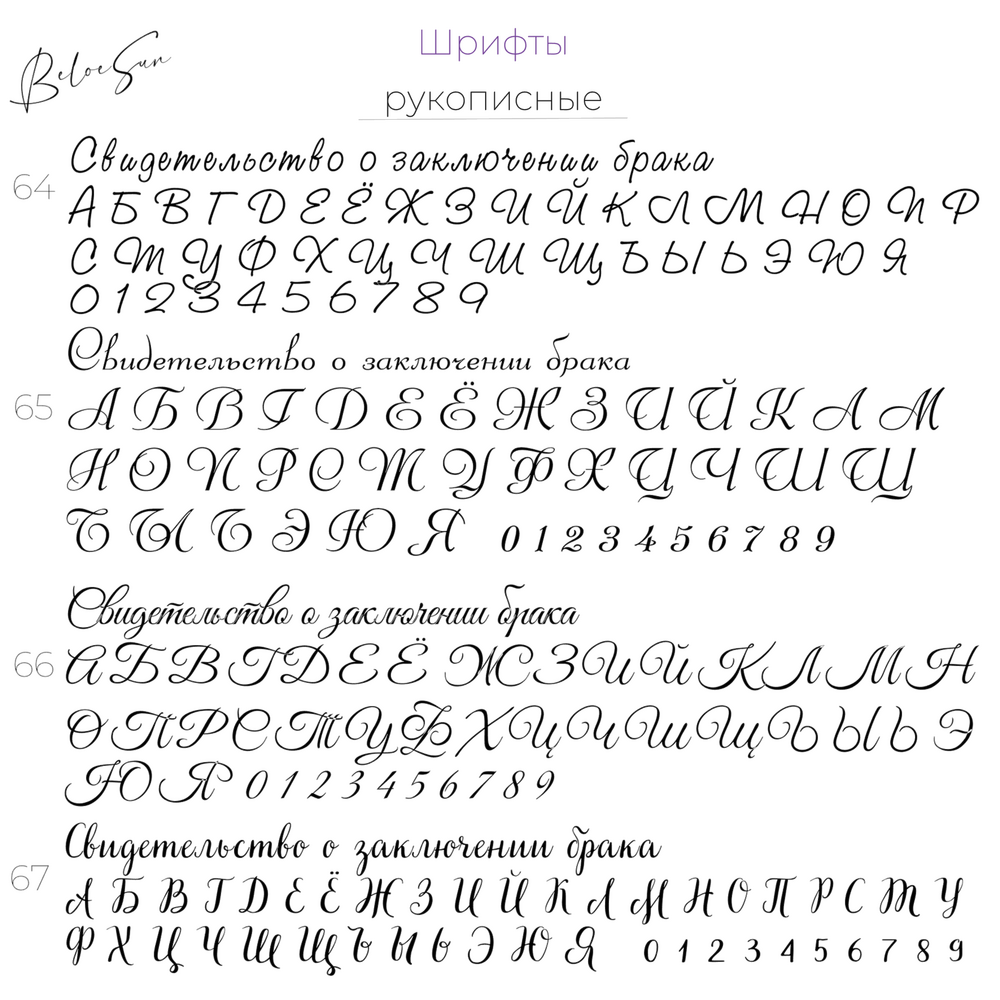 BeloeSun
Шрифты
рукописные
64
Свидетельство о заключении брака
А Б В Г Д Е Ё Ж З И Й К Л М Н О П Р
С Т У Ф Х Ц Ч Ш Щ Ъ Ы Ь Э Ю Я
0 1 2 3 4 5 6 7 8 9
65
Свидетельство о заключении брака
А Б В Г Д Е Ё Ж З И Й К Л М
Н О П Р С Т У Ф Х Ц Ч Ш Щ
Ъ Ы Ь Э Ю Я 0 1 2 3 4 5 6 7 8 9
66
Свидетельство о заключении брака
А Б В Г Д Е Ё Ж З И Й К Л М Н
О П Р С Т У Ф Х Ц Ч Ш Щ Ъ Ы Ь Э
Ю Я 0 1 2 3 4 5 6 7 8 9
67
Свидетельство о заключении брака
А Б В Г Д Е Ё Ж З И Й К Л М Н О П Р С Т У
Ф Х Ц Ч Ш Щ Ъ Ы Ь Э Ю Я 0 1 2 3 4 5 6 7 8 9